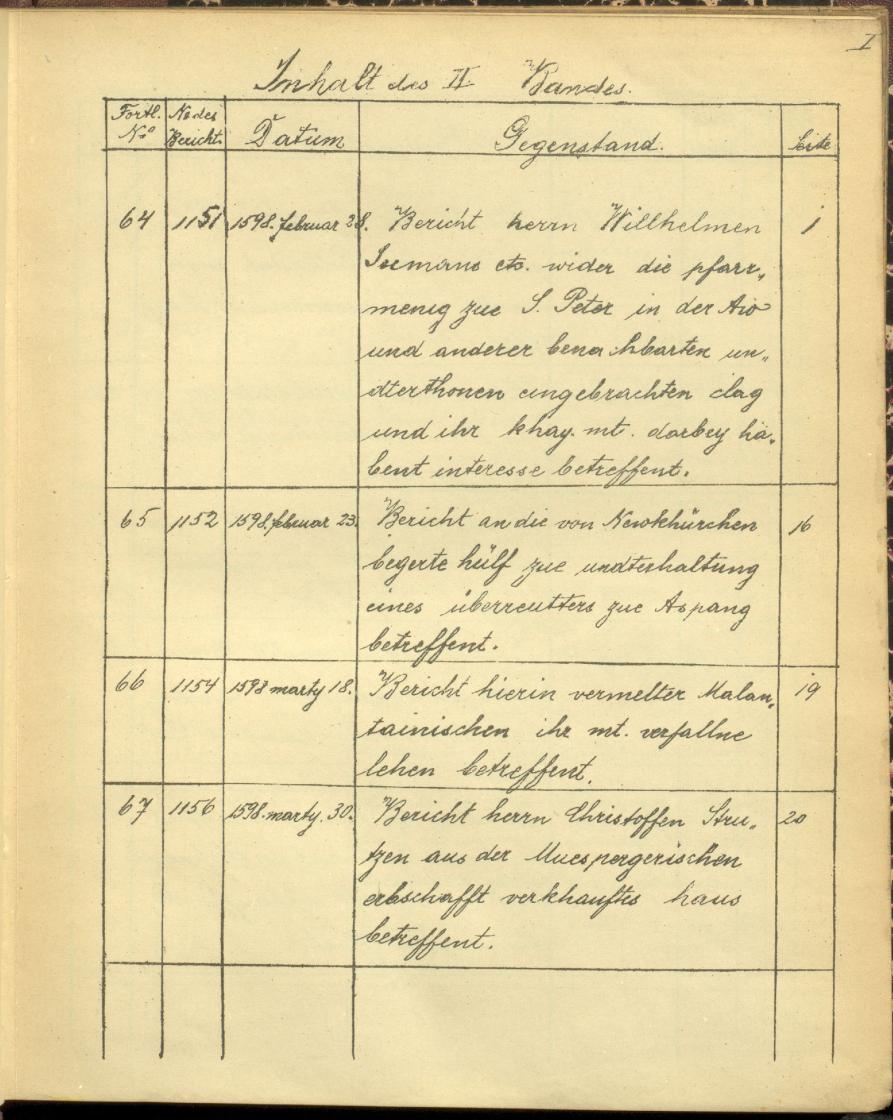 I
Inhalt des II Bandes.
Fortl. No des Datum Gegenstand. Seite
No Bericht.
64 1151 1598. februar 28. Bericht herrn Willhelmen 1
Seemans etc. wider die pfarr„
menig zue S. Peter in der Aw
und anderer benachbarten un„
dterthonen eingebrachten clag
und ihr khay. mt. darbey ha„
bent interesse betreffent.
65 1152 1598. februar 23. Bericht an die von Newkhürchen 16
begerte hülf zue undterhaltung
eines überreutters zue Aspang
betreffent.
66 1154 1598 marty 18. Bericht hierin vermelter Malan„ 19
tainischen ihr mt. verfallne
lehen betreffent.
67 1156 1598. marty. 30. Bericht herrn Christoffen Stru„ 20
tzen aus der Muespergerischen
erbschafft verkhauftes haus
betreffent.